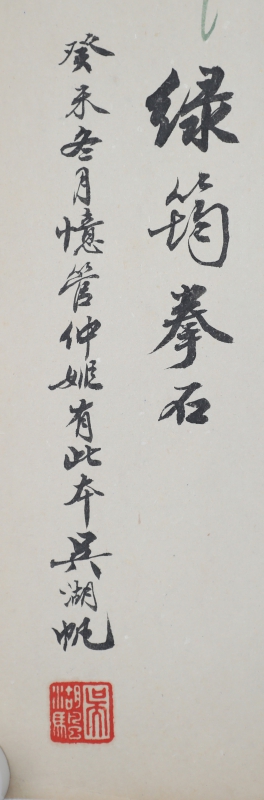 绿筠拳石
癸未冬月憶管仲姬有此本吳湖帆
吳湖颿